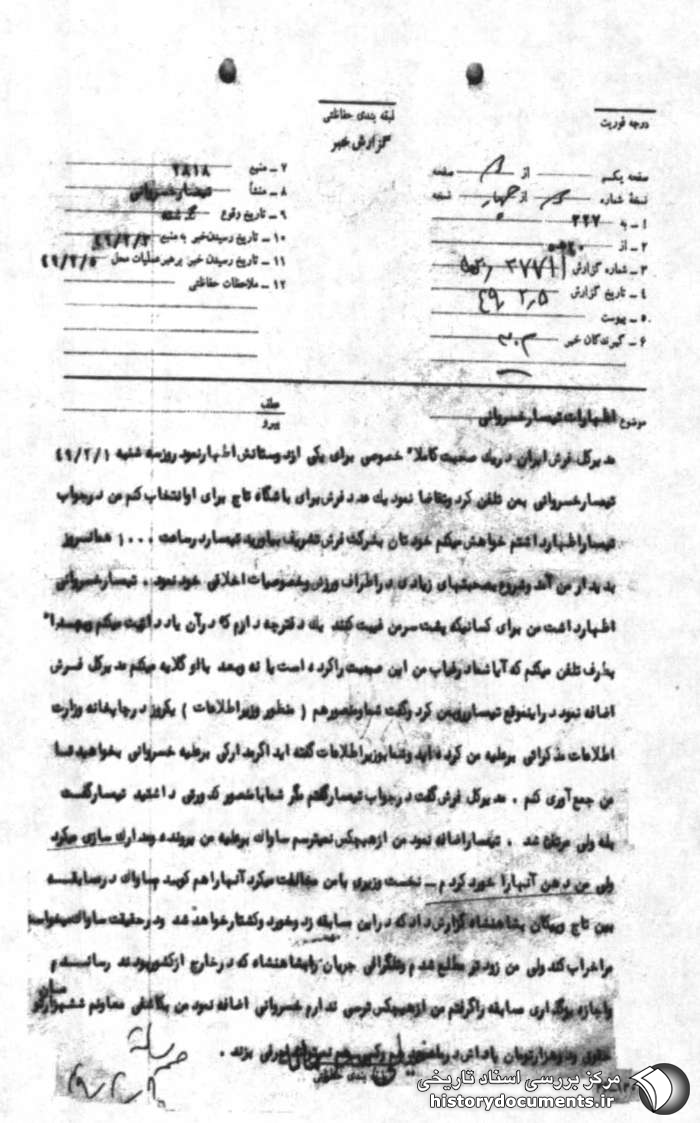 درجه فوریت
طبقه بندی حفاظتی
گزارش خبر
صفحه یکم از صفحه
نسخهٔ شماره از چهار نسخه
۱ ـ به ۳۲۷
۲ ـ از
۳ ـ شماره گزارش
۴ ـ تاریخ گزارش ۴۹٫۲٫۵
۵ ـ پیوست
۶ ـ گیرندگان خبر
۷ ـ منبع ۲۸۱۸
۸ ـ منشأ تیمسار خسروانی
۹ ـ تاریخ وقوع گذشته
۱۰ ـ تاریخ رسیدن خبر به منبع ۴۹/۲/۲
۱۱ ـ تاریخ رسیدن خبر برهبر عملیات محل ۴۹/۲/۵
۱۲ ـ ملاحظات حفاظتی
موضوع اظهارات تیمسار خسروانی
عطف
پیرو
مدیرکل فرش ایران در یك صحبت کاملا" خصوصی برای یکی از دوستانش اظهار نمود روز سه شنبه ۴۹/۲/۱
تیمسار خسروانی بمن تلفن کرد و تقاضا نمود یك عدد فرش برای باشگاه تاج برای او انتخاب کنم من در جواب
تیمسار اظهار داشتم خواهش میکنم خودتان بشرکت فرش تشریف بیاورید تیمسار در ساعت ۱۰۰۰ همانروز
بدیدار من آمد و شروع بصحبتهای زیادی در اطراف ورزش و خصوصیات اخلاقی خود نمود . تیمسار خسروانی
اظهار داشت من برای کسانیکه پشت سر من غیبت کنند یك دفترچه دارم که در آن یادداشت میکنم و بعدا"
بطرف تلفن میکنم که آیا شما در غیاب من این صحبت را کرده است یا نه و بعد با او گلایه میکنم مدیرکل فرش
اضافه نمود در اینموقع تیمسار رو بمن کرد و گفت شما و منصور هم ( منظور وزیر اطلاعات ) یکروز در چاپخانه وزارت
اطلاعات مذکراتی برعلیه من کرده اید و شما بوزیر اطلاعات گفته اید اگر مدارکی برعلیه خسروانی بخواهید تا
من جمع آوری کنم . مدیرکل فرش گفت در جواب تیمسار گفتم مگر شما با منصور کدورتی داشتید تیمسار گفت
بله ولی مرتفع شد . تیمسار اضافه نمود من از هیچکس نمیترسم ساواك برعلیه من پرونده و مدارك سازی میکرد
ولی من دهن آنها را خورد کردم ـ نخست وزیری با من مخالفت میکرد آنها را هم کوبیدم ساواك در مسابقه
بین تاج و پیکان بشاهنشاه گزارش داد که در این مسابقه زد و خورد و کشتار خواهد شد و در حقیقت ساواك میخواست
مرا خراب کند ولی من زودتر مطلع شدم و تلگرافی جریان را بشاهنشاه که در خارج از کشور بودند رسانیدم
و اجازه برگذاری مسابقه را گرفتم من از هیچکس ترسی ندارم خسروانی اضافه نمود من
حقوق و دو هزار تومان پاداش
طبقه بندی حفاظتی
مرکز بررسی اسناد تاریخی
historydocuments.ir